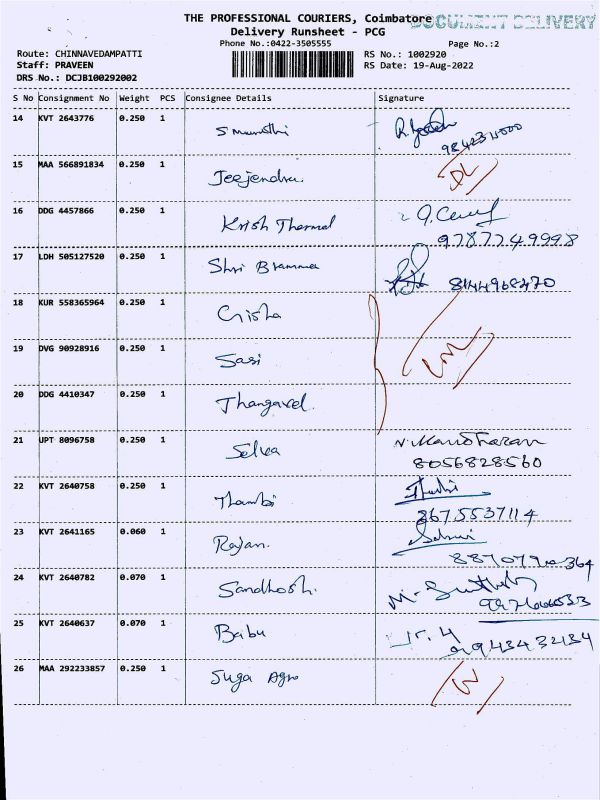 THE PROFESSIONAL COURIERS, Coimbatore
DOCUMENT DELIVERY
Delivery Runsheet - PCG
Phone No.:0422-3505555
Page No.:2
Route: CHINNAVEDAMPATTI
RS No.: 1002920
Staff: PRAVEEN
RS Date: 19-Aug-2022
DRS No.: DCJB100292002
S No Consignment No Weight PCS Consignee Details Signature
14 KVT 2643776 0.250 1
15 MAA 566891834 0.250 1 Jeejendra.
DL
16 DDG 4457866 0.250 1 Krish Thermal
9787749998
17 LDH 505127520 0.250 1 Shri Bramma
8144968470
18 KUR 558365964 0.250 1
19 DVG 90928916 0.250 1 Sasi
20 DDG 4410347 0.250 1 Thangavel.
21 UPT 8096758 0.250 1 Selva N. Manoharan
8056828560
22 KVT 2640758 0.250 1 Thambi
23 KVT 2641165 0.060 1 Rajan.
24 KVT 2640782 0.070 1 Sandhosh.
25 KVT 2640637 0.070 1 Babu
26 MAA 292233857 0.250 1 Suga Agro